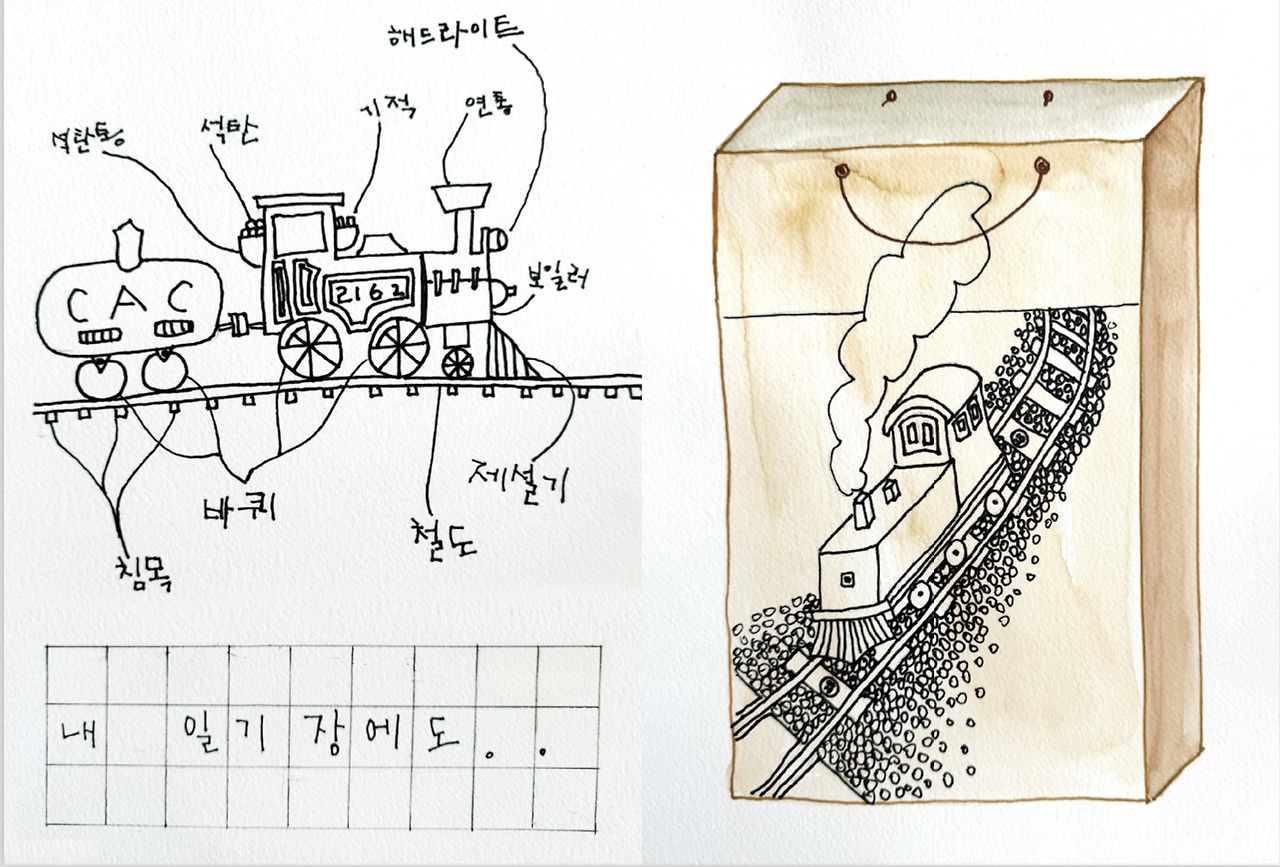 해드라이트
기적
연통
석탄통
석탄
보일러
C A C
2162
제설기
바퀴
철도
침목
내 일기장에도..